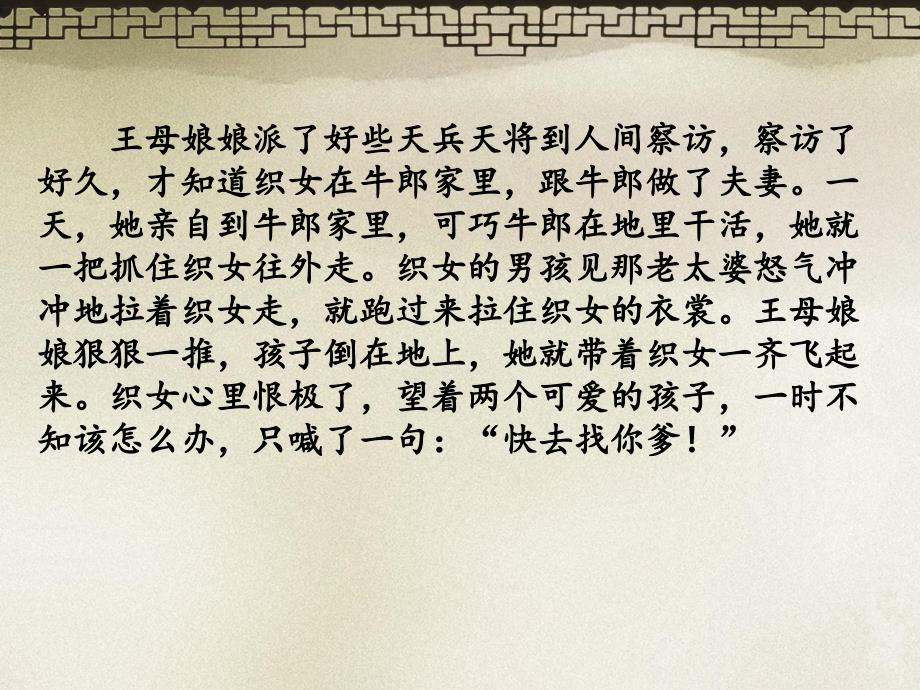 王母娘娘派了好些天兵天将到人间察访，察访了
好久，才知道织女在牛郎家里，跟牛郎做了夫妻。一
天，她亲自到牛郎家里，可巧牛郎在地里干活，她就
一把抓住织女往外走。织女的男孩见那老太婆怒气冲
冲地拉着织女走，就跑过来拉住织女的衣裳。王母娘
娘狠狠一推，孩子倒在地上，她就带着织女一齐飞起
来。织女心里恨极了，望着两个可爱的孩子，一时不
知该怎么办，只喊了一句：“快去找你爹！”